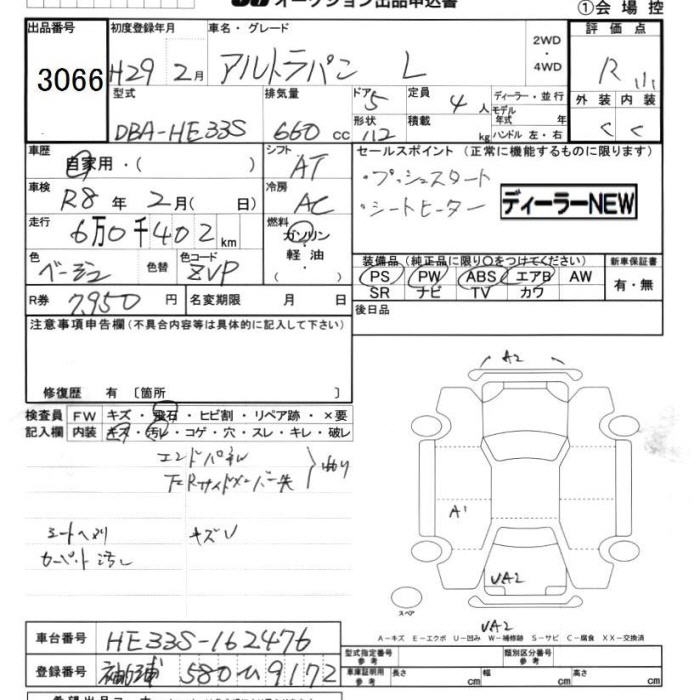 オークション出品申込書
①会場控
出品番号
3066
初度登録年月
H29 2月
車名・グレード
アルトラパン L
2WD
・
4WD
評価点
R
外装 内装
C C
型式
DBA-HE33S
排気量
660 cc
ドア 5
形状 112
定員 4 人
積載 kg
ディーラー・並行
モデル年式 年式
ハンドル 左・右
車歴
自家用・( )
シフト
AT
車検
R8 年 2月( 日)
冷房
AC
走行
6万0千402km
燃料
ガソリン
・
軽油
・
( )
色
ベージュ
色替
色コード
ZVP
R券 7,950 円
名変期限 月 日
セールスポイント(正常に機能するものに限ります)
・プッシュスタート
・シートヒーター
ディーラーNEW
装備品(純正品に限り○をつけてください)
PS PW ABS エアB AW
SR ナビ TV カワ
新車保証書
有・無
後日品
注意事項申告欄(不具合内容等は具体的に記入して下さい)
修復歴 有〔箇所 〕
検査員記入欄
FW キズ・飛石・ヒビ割・リペア跡・×要
内装 キズ・汚レ・コゲ・穴・スレ・キレ・破レ
エンドパネル
シートヘタリ キズU
カーペット汚レ
A2
A1
UA2
スペア
UA2
A-キズ E-エクボ U-凹み W-補修跡 S-サビ C-腐食 XX-交換済
車台番号 HE33S-162476
登録番号 580 9172
型式指定番号 参考
類別区分番号 参考
車庫証明用 参考
長さ cm 幅 cm 高さ cm